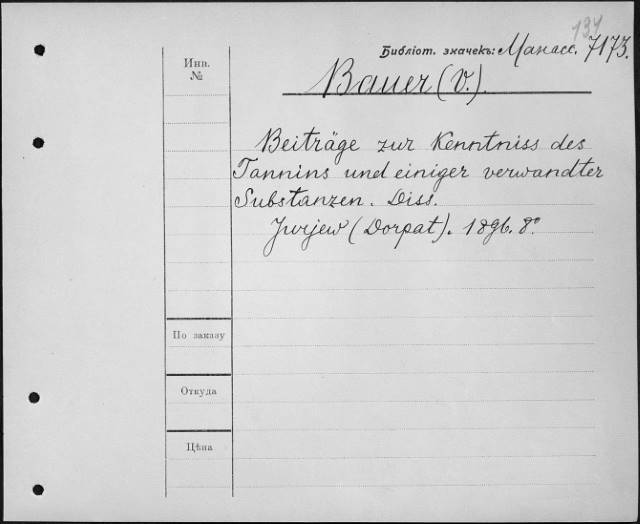 134
Библіот. значекъ: Манасс. 7173.
Инв.
№
Bauer (V.).
Beiträge zur Kenntniss des
Tannins und einiger verwandter
Substanzen. Diss.
Jurjew (Dorpat). 1896. 8°.
По заказу
Откуда
Цѣна